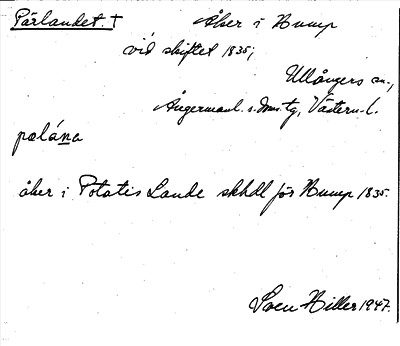 Pärlandet † Åker i Bump
vid skiftet 1835;
Ullångers sn.,
Ångermanl. s. dms. tg, Västern. l.
palána
åker i Potatis Lande skhdl för Bump 1835.
Sven Hiller 1947.